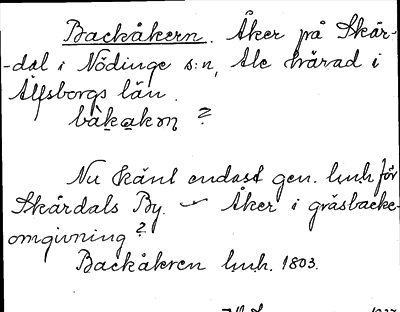 Backåkern. Åker på Skår-
-dal i Nödinge s:n, Ale härad i
Älfsborgs län.
bàkakæn ?
Nu känt endast gen. lm.h för
Skårdals By. – Åker i gräsbacke-
omgivning ?
Backåkren lm.h. 1803.